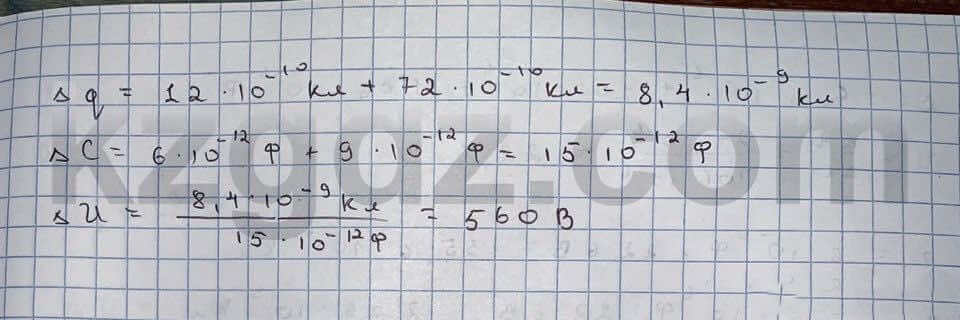 Δq = 12 · 10⁻¹⁰ кл + 72 · 10⁻¹⁰ кл = 8,4 · 10⁻⁹ кл
ΔC = 6 · 10⁻¹² Ф + 9 · 10⁻¹² Ф = 15 · 10⁻¹² Ф
ΔU = 8,4 · 10⁻⁹ кл / 15 · 10⁻¹² Ф = 560 В
kzgdz.com